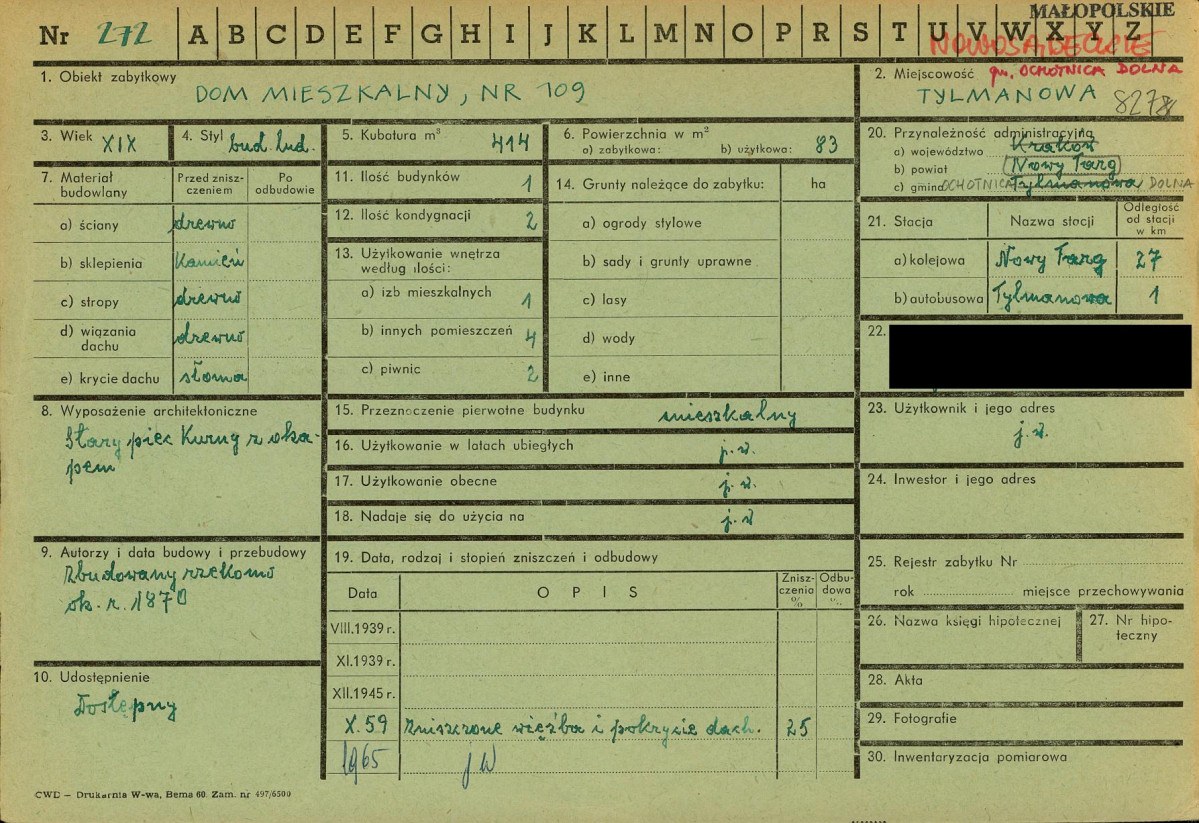 MAŁOPOLSKIE
Nr 272 A B C D E F G H I J K L M N O P R S T U V W X Y Z
NOWOSĄDECKIE
1. Obiekt zabytkowy
DOM MIESZKALNY, NR 109
2. Miejscowość gm. OCHOTNICA DOLNA
TYLMANOWA 8278
3. Wiek XIX
4. Styl bud. lud.
5. Kubatura m³ 414
6. Powierzchnia w m²
a) zabytkowa: b) użytkowa: 83
7. Materiał budowlany
Przed zniszczeniem
Po odbudowie
a) ściany drewno
b) sklepienia Kamień
c) stropy drewno
d) wiązania dachu drewno
e) krycie dachu słoma
8. Wyposażenie architektoniczne
Stary piec Kurny z oka-
pem
9. Autorzy i data budowy i przebudowy
Zbudowany rzekomo
ok. r. 1870
10. Udostępnienie
Dostępny
11. Ilość budynków 1
12. Ilość kondygnacji 2
13. Użytkowanie wnętrza
według ilości:
a) izb mieszkalnych 1
b) innych pomieszczeń 4
c) piwnic 2
14. Grunty należące do zabytku: ha
a) ogrody stylowe
b) sady i grunty uprawne
c) lasy
d) wody
e) inne
15. Przeznaczenie pierwotne budynku mieszkalny
16. Użytkowanie w latach ubiegłych j. w.
17. Użytkowanie obecne j. w.
18. Nadaje się do użycia na j. w
19. Data, rodzaj i stopień zniszczeń i odbudowy
Data OPIS Zniszczenia % Odbudowa %
VIII.1939 r.
XI.1939 r.
XII.1945 r.
X.59 Zniszczone więźba i pokrycie dach. 25
1965 j w
20. Przynależność administracyjna
a) województwo Kraków
b) powiat Nowy Targ
c) gmina OCHOTNICA Tylmanowa DOLNA
21. Stacja Nazwa stacji Odległość od stacji w km
a) kolejowa Nowy Targ 27
b) autobusowa Tylmanowa 1
22.
23. Użytkownik i jego adres
j. w.
24. Inwestor i jego adres
25. Rejestr zabytku Nr
rok miejsce przechowywania
26. Nazwa księgi hipotecznej
27. Nr hipo-
teczny
28. Akta
29. Fotografie
30. Inwentaryzacja pomiarowa
CWD – Drukarnia W-wa, Bema 60. Zam. nr 497/6500